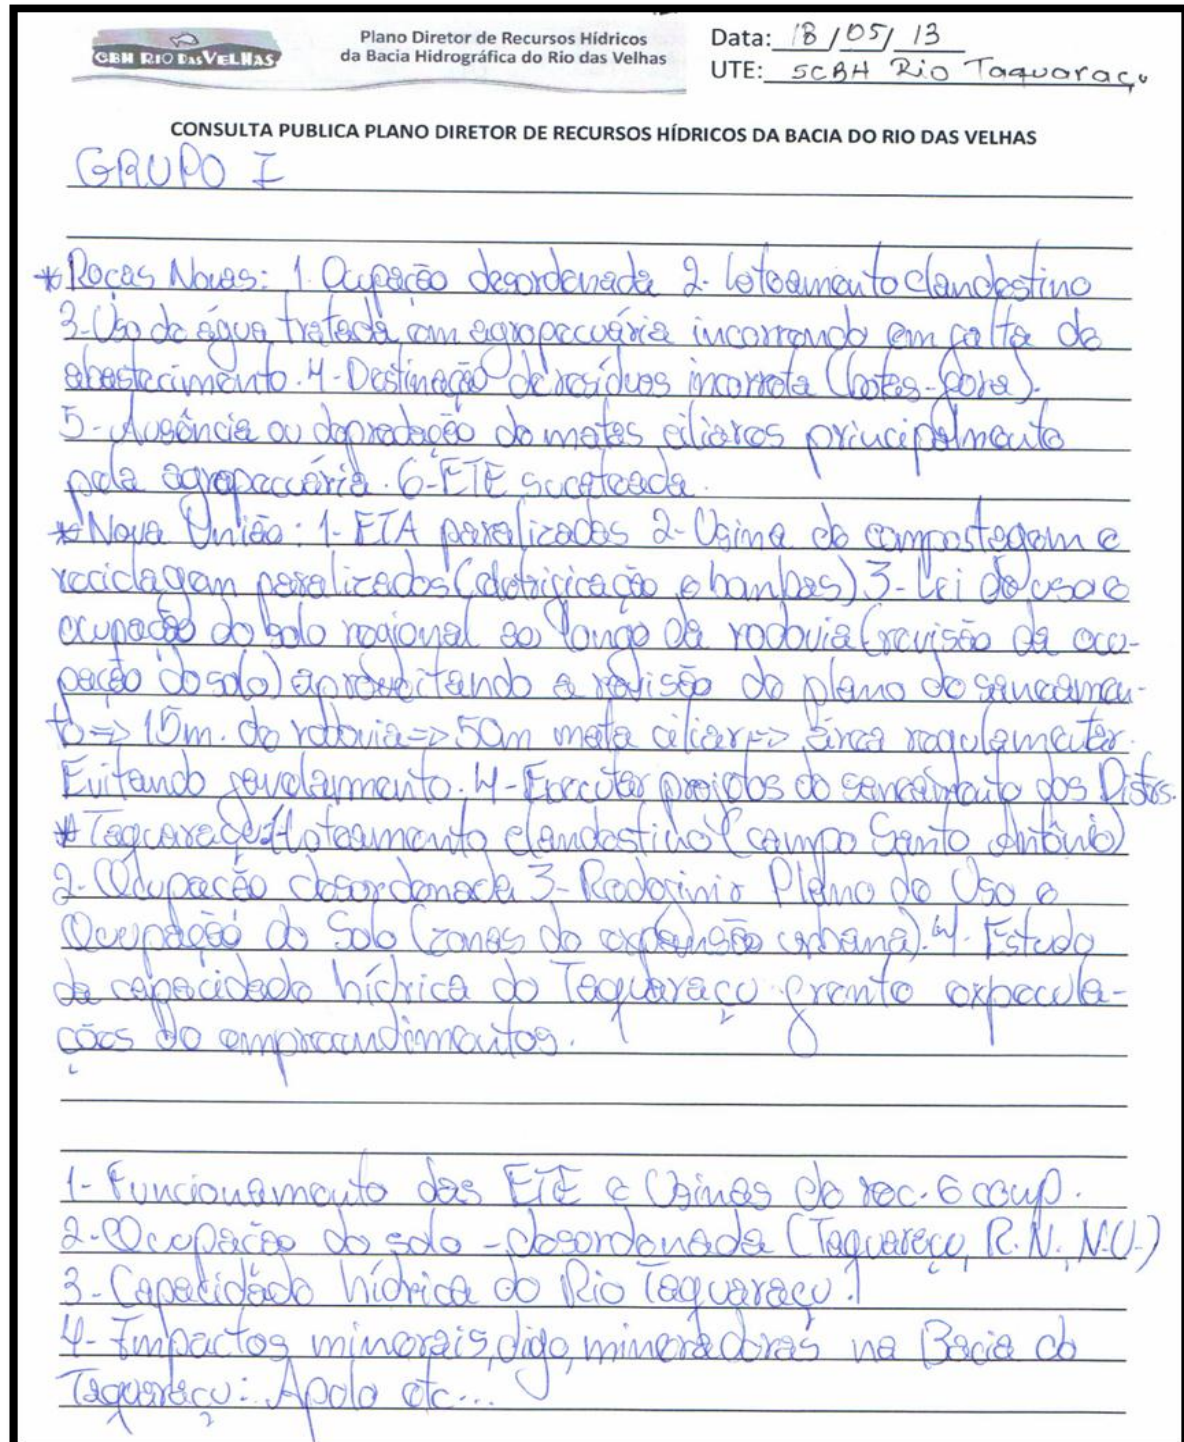 CBH RIO DAS VELHAS
Plano Diretor de Recursos Hídricos
da Bacia Hidrográfica do Rio das Velhas
Data: 18/05/13
UTE: SCBH Rio Taquaraçu
CONSULTA PUBLICA PLANO DIRETOR DE RECURSOS HÍDRICOS DA BACIA DO RIO DAS VELHAS
GRUPO I
* Roças Novas: 1. Ocupação desordenada 2- loteamento clandestino
3-Uso de água tratada em agropecuária incorrendo em falta de
abastecimento. 4-Destinação de resíduos incorreta (botas-fora).
5-Ausência ou depredação de matas ciliares principalmente
pela agropecuária. 6-ETE sucateada.
* Nova União: 1- ETA paralizadas 2- Usina de compostagem e
reciclagem paralizados (eletrificação e bombas) 3- Lei de uso e
ocupação do solo regional ao longo da rodovia (revisão da ocu-
pação do solo) aproveitando a revisão do plano de saneamen-
to => 15m. da rodovia => 50m mata ciliar => área regulamentar.
Evitando favelamento. 4- Executar projetos de saneamento dos Distos.
* Taquaraçu: 1-loteamento clandestino (campo Santo Antônio)
2- Ocupação desordenada 3- Redefinir Plano de Uso e
Ocupação do Solo (zonas de expansão urbana). 4- Estudo
da capacidade hídrica do Taquaraçu frente expecula-
ções de empreendimentos.
1- Funcionamento das ETE e Usinas de rec. e comp.
2- Ocupação do solo - desordenada (Taquaraçu, R.N. N.U.)
3- Capacidade hídrica do Rio Taquaraçu.
4- Impactos minerais, digo, mineradoras na Bacia do
Taquaraçu: Apolo etc...